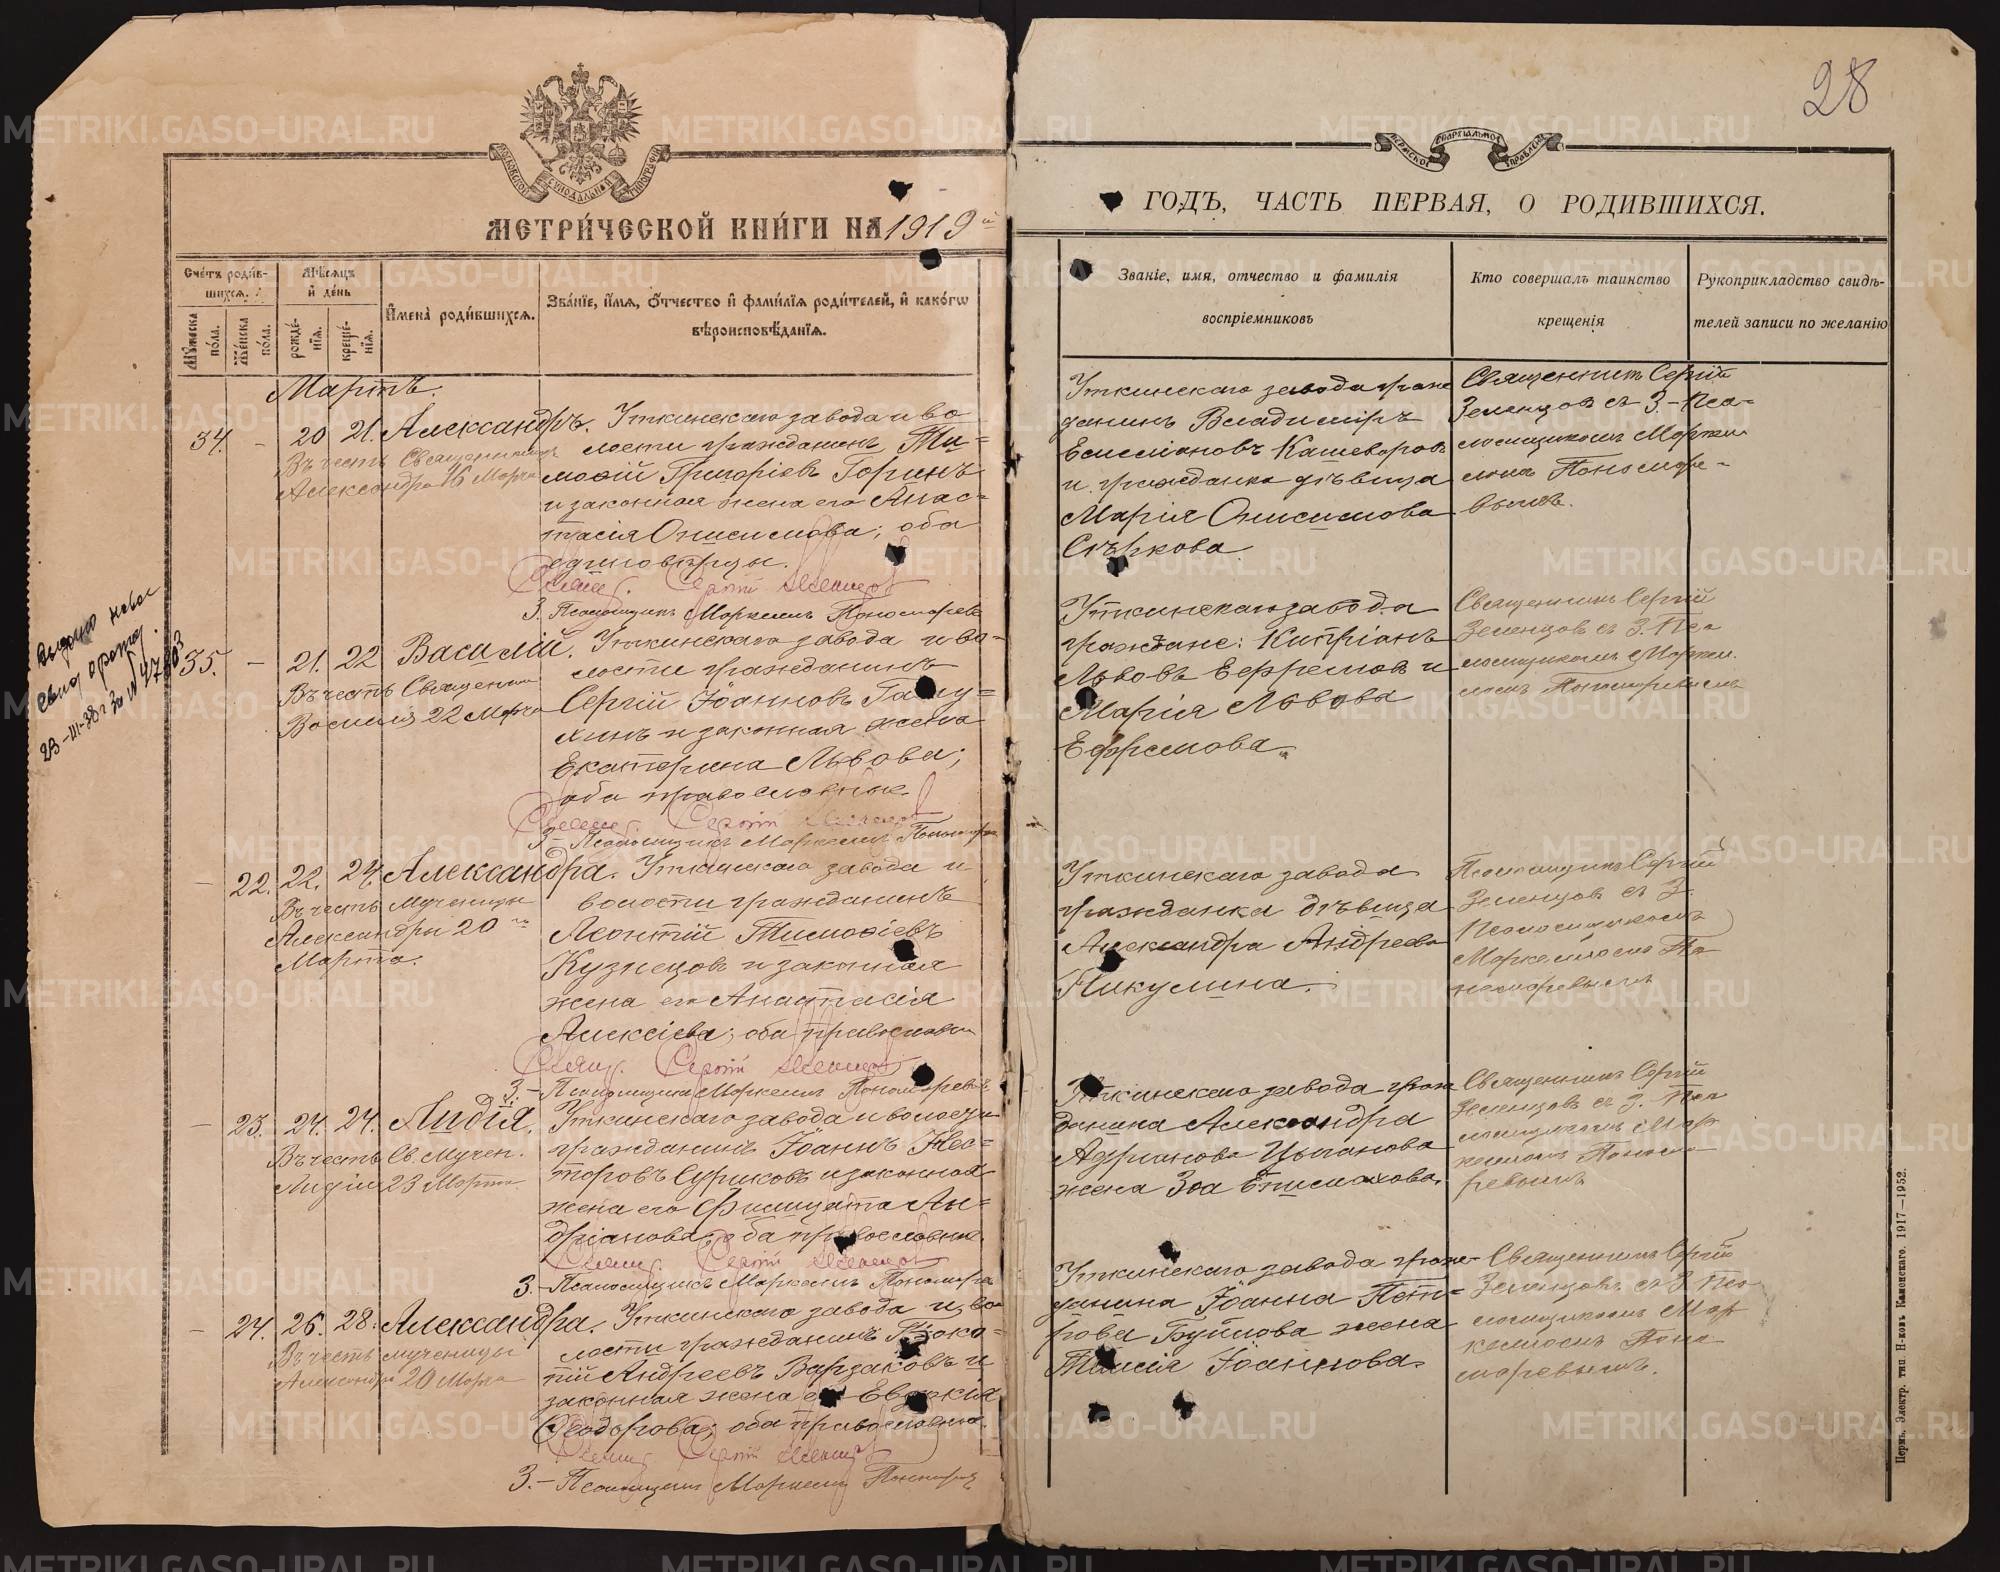 28
МЕТРИ́ЧЕСКОЙ КНИ́ГИ НА 1919й
ГОДЪ, ЧАСТЬ ПЕРВАЯ, О РОДИВШИХСЯ.
Счетъ роди́в-
шихся.
Мѣсяцъ
и де́нь
Мꙋжеска по́ла.
Же́нска по́ла.
рожде́-
нїя.
креще́-
нїя.
Имена̀ роди́вшихся.
Зва́нїе, и́мя, о́тчество и фами́лїя роди́телей, и како́гѡ
вѣроисповѣ́данїя.
Званіе, имя, отчество и фамилія
воспріемниковъ
Кто совершалъ таинство
крещенія
Рукоприкладство свидѣ-
телей записи по желанію
Мартъ.
34. - 20 21. Александръ.
Въ честь Священномуч
Александра 16 Марта
Уткинскаго завода и во
лости гражданинъ Ти-
моѳій Григоріевъ Горинъ
и законная жена его Анас-
тасія Онисимова; оба
единовѣрцы.
Свящ. Сергій Зеленцов
З. Псаломщикъ Маркеллъ Пономарев
Уткинскаго завода граж
данинъ Владиміръ
Емиліановъ Кашеваров
и гражданка дѣвица
Марія Онисимова
Священникъ Сергій
Зеленцовъ съ З.-Пса-
ломщикомъ Маркел-
ломъ Пономаре-
вымъ.
35. - 21. 22 Василій.
Въ честь Священном
Василія 22 Марта
Уткинскаго завода и во-
лости гражданинъ
Сергій Іоанновъ Галу-
хинъ и законная жена
Екатерина Львова;
оба православные.
Свящ. Сергій Зеленцов
З- Псаломщикъ Маркеллъ Пономарев
Уткинскаго завода
граждане: Кипріанъ
Львовъ Ефремовъ и
Марія Львова
Ефремова.
Священникъ Сергій
Зеленцовъ съ З. Пса
ломщикомъ Маркел.
ломъ Пономаревымъ
Выдано новое
23-III-38 г за №
- 22. 22. 24. Александра.
Въ честь мученицы
Александры 20го
Марта.
Уткинскаго завода и
волости гражданинъ
Леонтій Тимоѳіевъ
Кузнецовъ и законная
жена его Анастасія
Алексіева; оба православн
Свящ. Сергій Зеленцов
З.- Псаломщикъ Маркеллъ Пономарев
Уткинскаго завода
гражданка дѣвица
Александра Андреева
Никулина.
Псаломщикъ Сергій
Зеленцовъ съ З.
Псаломщикомъ
Маркелломъ По
номаревымъ
- 23. 24. 24. Лидія.
Въ честь Св. Мучен.
Лидіи 23 Марта.
Уткинскаго завода и волости
гражданинъ Іоаннъ Нес-
торовъ Суриковъ и законная
жена его Филицата Ан-
дріанова; оба православные.
Свящ. Сергій Зеленцов
З.- Псаломщикъ Маркеллъ Пономарев
Уткинскаго завода граж
данина Александра
Адрианова Цыганова
жена Зоа Епимахова.
Священникъ Сергій
Зеленцовъ съ З. Пса
ломщикомъ Мар
келломъ Понома
ревымъ
- 24. 26. 28. Александра.
Въ честь мученицы
Александры 20 Марта
Уткинскаго завода и во
лости гражданинъ Проко-
пій Андреевъ Варзаковъ и
законная жена его Евдокія
Ѳеодорова; оба православные.
Свящ. Сергій Зеленцов
З.- Псаломщикъ Маркеллъ Пономарев
Уткинскаго завода граж-
данина Іоанна Пет-
рова Буйлова жена
Таисія Іоаннова.
Священникъ Сергій
Зеленцовъ съ З. Пса
ломщикомъ Мар
келломъ Поно
маревымъ.
Пермь. Электр. тип. Н-ковъ Каменскаго. 1917—1952.
METRIKI.GASO-URAL.RU